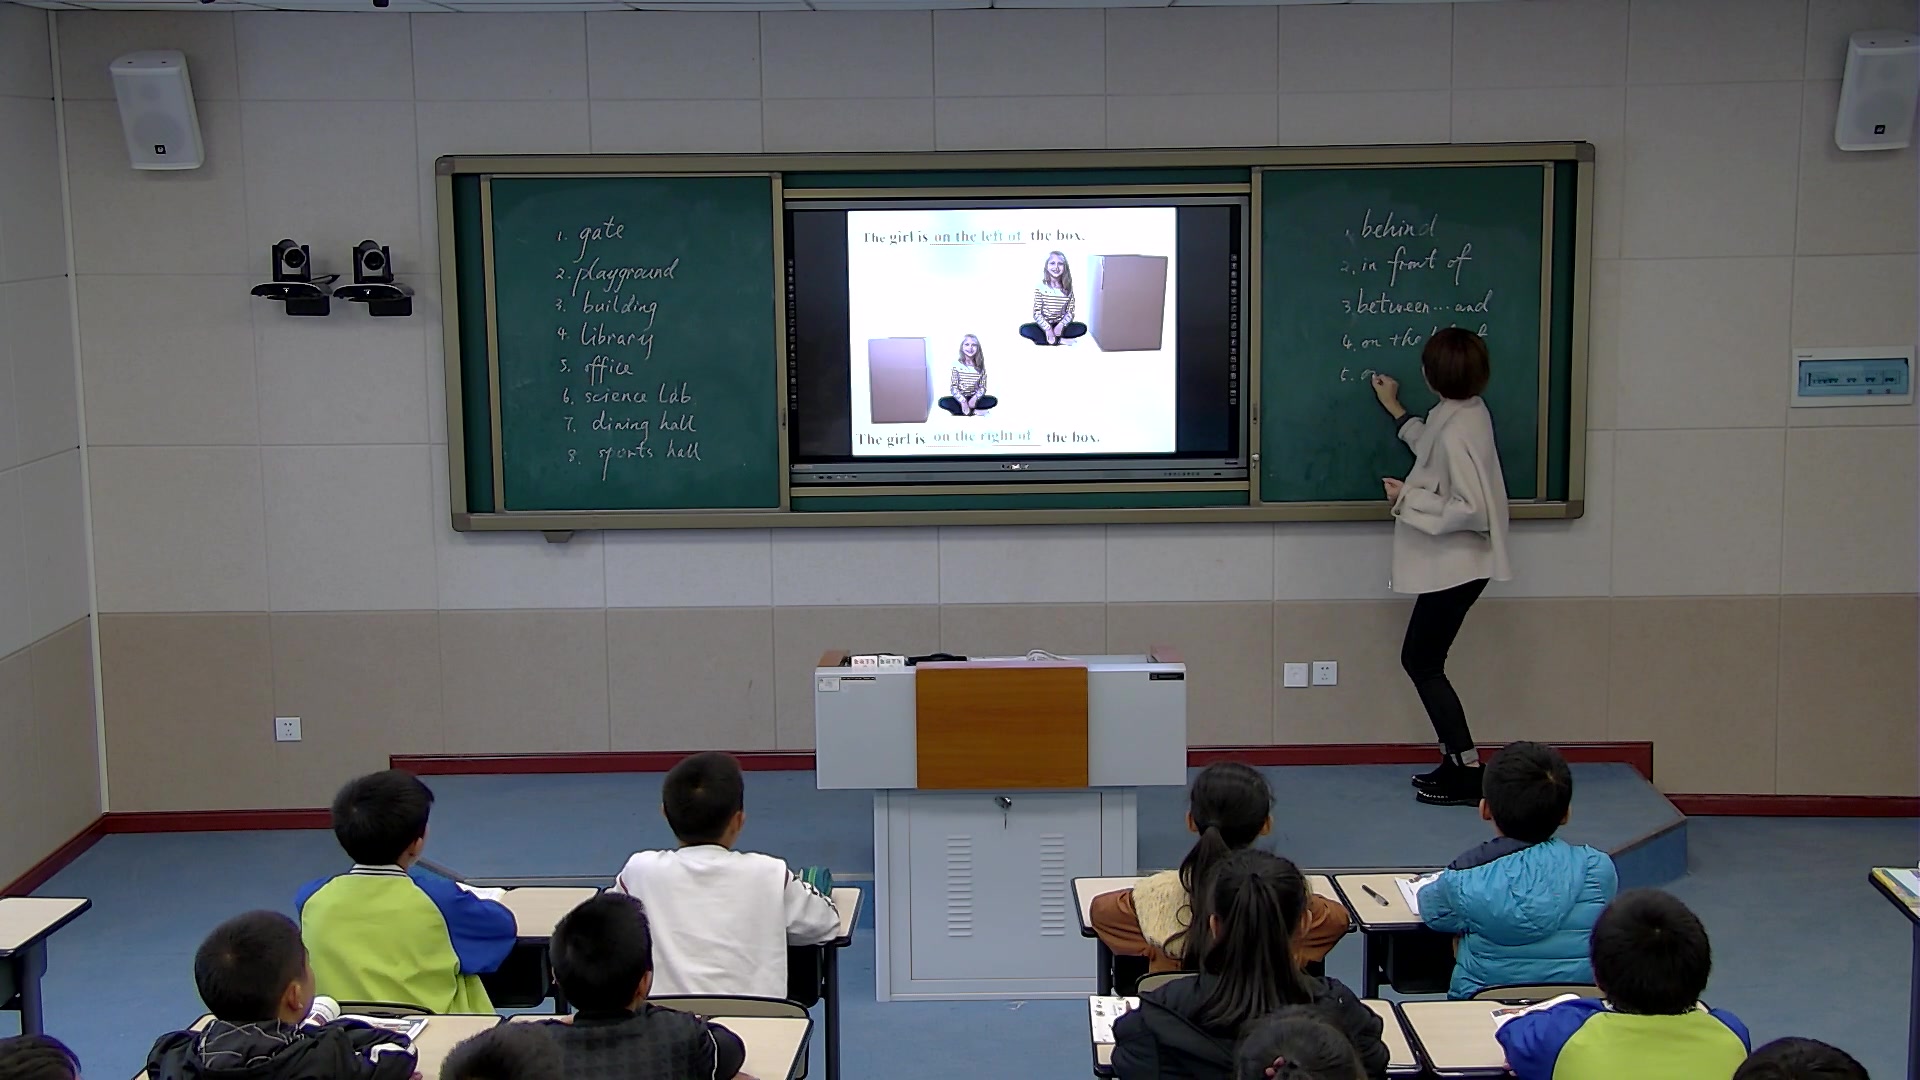 1. gate
2. playground
3. building
4. library
5. office
6. science Lab
7. dining hall
8. sports hall
The girl is on the left of the box.
The girl is on the right of the box.
1. behind
2. in front of
3 between...and
4. on the
5. o